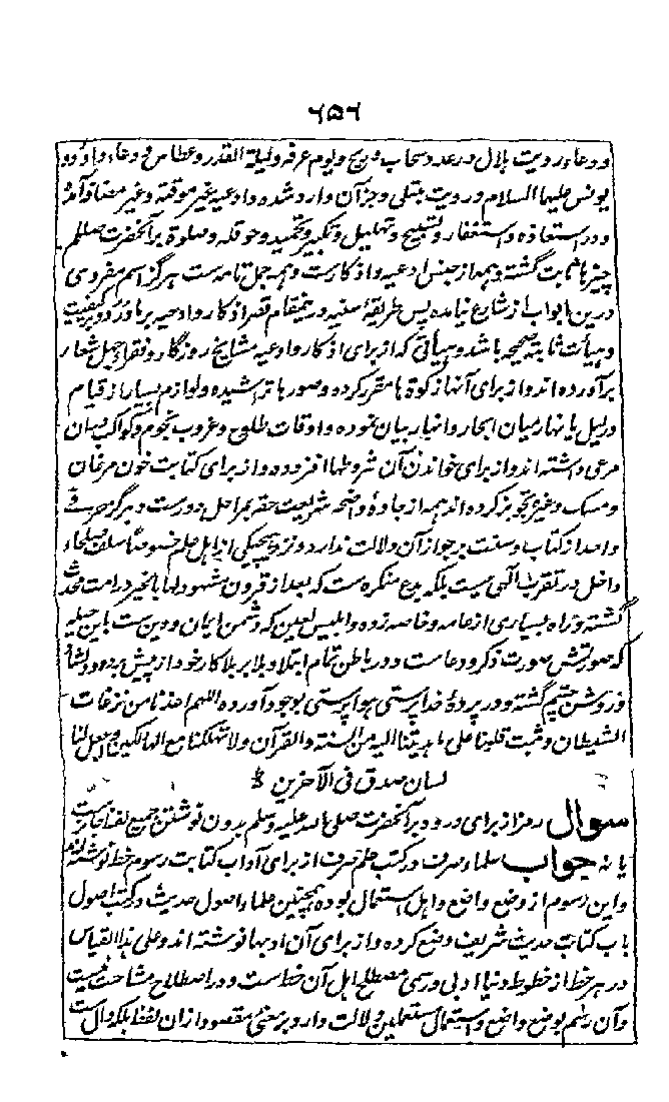 ۶۵۶
و دعاء رویت ہلال و رعد و سحاب و ریح و یوم عرفہ و لیلۃ القدر و عطاس و دعاء داؤد و
یونس علیہما السلام و رویت مبتلی و جز آن وارد شدہ و ادعیہ غیر موقتہ و غیر مضافہ آمدہ
و در استعاذہ و استغفار و تسبیح و تہلیل و تکبیر و تحمید و حوقلہ و صلوۃ بر آنحضرت صللم
چیزہا ثابت گشتہ و ہمہ از جنس ادعیہ و اذکارست و ہمہ جمل تامہ ست ہرگز اسم مفردی
درین ابواب از شارع نیامدہ پس طریقۂ سنیہ درینمقام قصر اذکار و ادعیہ بر ماورد و بر کیفیت
و ہیأت ثابتہ صحیحہ باشد و ہیأتی کہ از برای اذکار و ادعیہ مشایخ روزگار و فقراء جہل شعار
برآوردہ اند و از برای آنہا زکوۃ ہا مقرر کردہ و صورہا تراشیدہ و لوازم بسیار از قیام
در لیل یا نہار میان ابحار و انہار بیان نمودہ و اوقات طلوع و غروب نجوم و کواکب دران
مرعی داشتہ اند و از برای خواندن آن شروطہا افزودہ و از برای کتابت خون مرغان
و مسک و غیرہ تجویز کردہ اند ہمہ از جادۂ واضحہ شریعت حقہ بمراحل دورست و ہرگز حرفے
واحد از کتاب و سنت بر جواز آن دلالت ندارد و نزد ہیچیکی از اہل علم خصوصًا سلف صلحاء
داخل در تقرب الٰہی نیست بلکہ بدع منکرہ ست کہ بعد از قرون مشہود لہا بالخیر در امت محدث
گشتہ و راہ بسیاری از عامہ و خاصہ زدہ و ابلیس لعین کہ دشمن ایمان و دین ست باین حیلہ
کہ صورتش صورت ذکر و دعاست و در باطن تمام ابتلا و بلا برملا کار خود از پیش بردہ و دلشاد
و روشن چشم گشتہ و در پردۂ خدا پرستی ہوا پرستی بوجود آوردہ اللہم اعذنا من نزغات
الشیطان و ثبت قلبنا علی ما ہدیتنا الیہ من السنۃ و القرآن و لا تہلکنا مع الہالکین و اجعل لنا
لسان صدق فی الآخرین
سوال رمز از برای درود بر آنحضرت صلی اللہ علیہ وسلم بدون نوشتن جمیع لفظ جائزست
یا نہ جواب علماء صرف در کتب علم صرف از برای آداب کتابت رسوم خط نوشتہ اند
و این رسوم از وضع واضع و اہل استعمال بودہ ہمچنین علماء اصول حدیث در کتب اصول
باب کتابت حدیث شریف وضع کردہ و از برای آن ادبہا نوشتہ اند و علی ہذا القیاس
در ہر خط از خطوط دنیا ادبی و رسمی مصطلح اہل آن خط است و در اصطلاح مشاحت نیست
و آن رسم بوضع واضع و استعمال مستعملین دلالت دارد بر معنی مقصود ازان لفظ بلکہ دال است